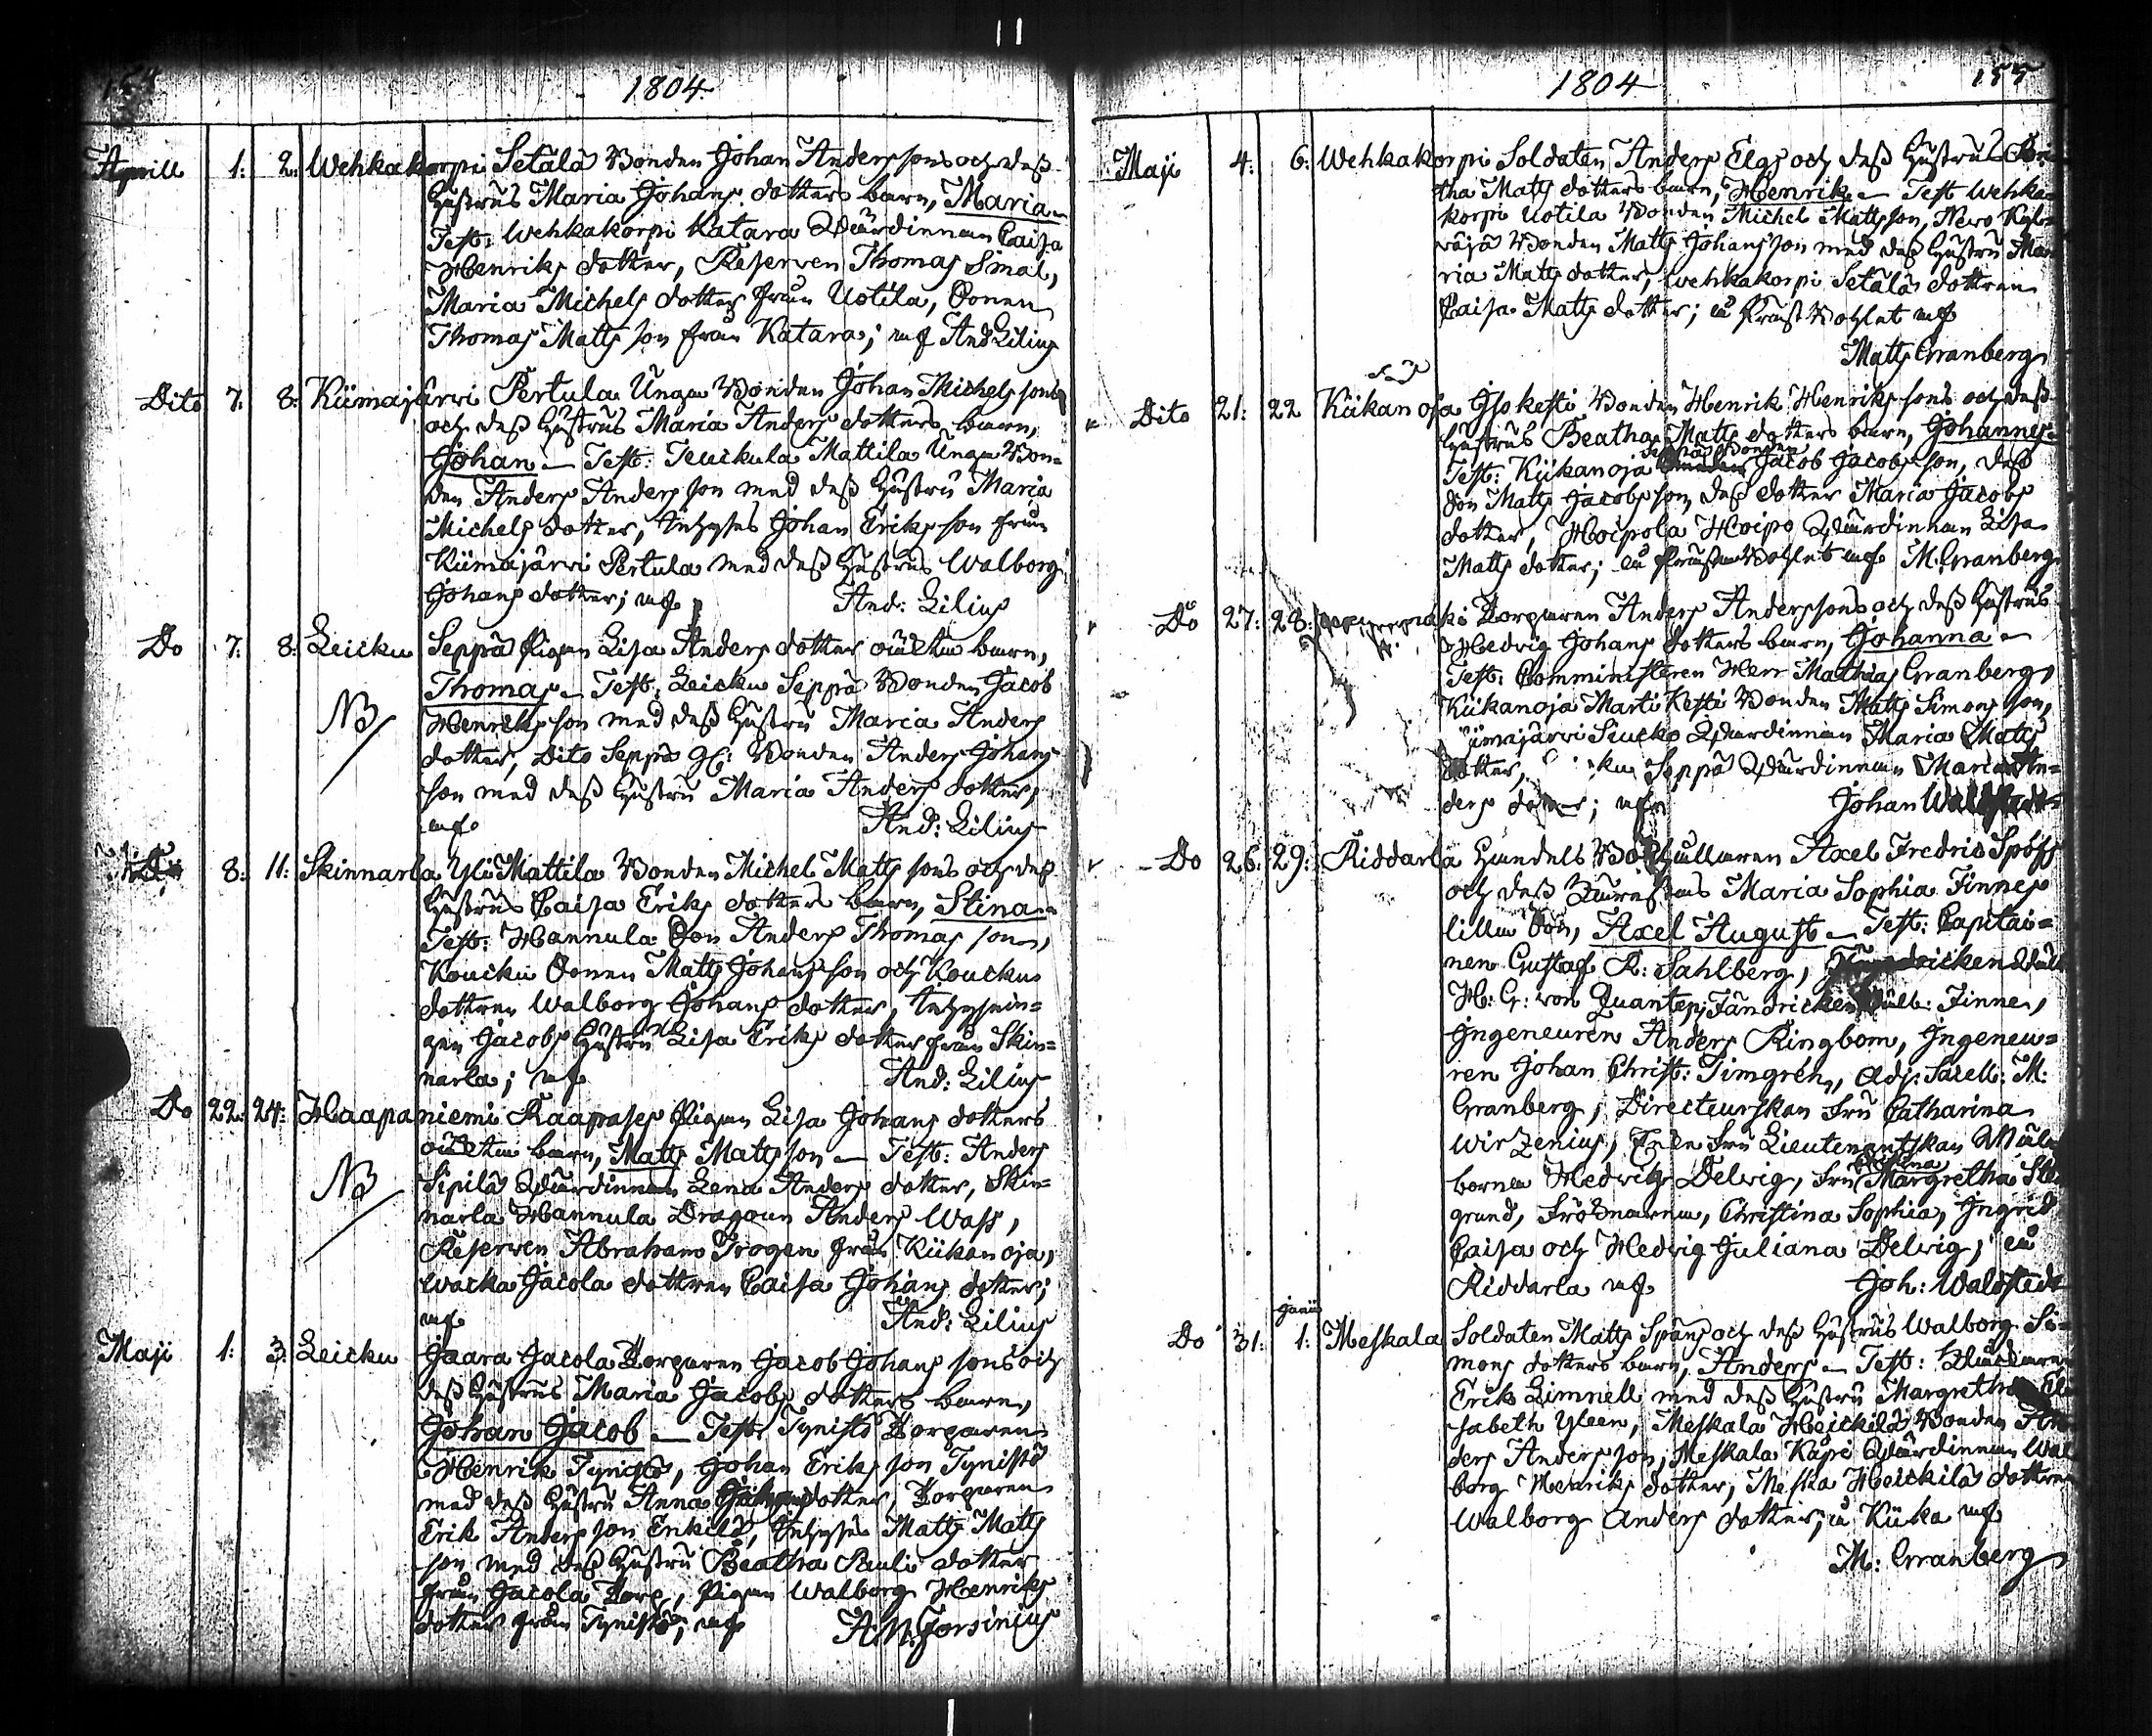 1804.
Aprill 1: 2. Wehkakorpi Setälä Bonden Johan Anderssons och dess
Hustrus Maria Johans dotters barn, Maria
Test: Wehkakorpi Katara Wärdinnan Caisa
Henriks dotter, Reserven Thomas Smal,
Maria Michels dotter från Uotila, Sonen
Thomas Matts son från Katara; mf And Lilius
Dito 7. 8. Kiimajärvi Pertula Unga Bonden Johan Michels sons
och dess Hustrus Maria Anders dotters barn,
Johan — Test: Teuckula Mattila Unga Bon=
den Anders Anders son med dess Hustru Maria
Michels dotter, Inhyses Johan Eriks son från
Kiimajärvi Pertula med dess Hustru Walborg
Johans dotter; mf And: Lilius
Do 7. 8. Leicku Seppä Pigan Lisa Anders dotter oäckta barn,
Thomas — Test: Leicku Seppä Bonden Jacob
NB Henriks son med dess Hustru Maria Anders
dotter, Dito Seppä gl: Bonden Anders Johans
son med dess Hustru Maria Anders dotter;
mf And: Lilius
8: 11: Skinnarla Yli Mattila Bonden Michel Matts sons och dess
Hustrus Caisa Eriks dotters barn, Stina
Test: Hannula Son Anders Thomas son,
Koucku Sonen Matts Johans son och Koucku
dottren Walborg Johans dotter, Inhysnin=
gen Jacobs Hustru Lisa Eriks dotter från Skin=
narla; mf And: Lilius
Do 22. 24: Haapaniemi Raapases Pigan Lisa Johans dotters
oäckta barn, Matts Matts son — Test: Anders
NB Sipilä Wärdinnan Lena Anders dotter, Skin=
narla Hannula Dragoun Anders Wass,
Reserven Abraham Trogen från Kiikanoja,
Wacka Jacola dottren Caisa Johans dotter;
mf And: Lilius
Maji 1: 3. Leicku Jaara Jacola Torparen Jacob Johans sons och
dess Hustrus Maria Jacobs dotters barn,
Johan Jacob — Test: Tynistö Torparen
Henrik Tynistö, Johan Eriks son Tynistö
med dess Hustru Anna dotter, Torparen
Erik Anders son Enkilä, Inhyses Matts Matts
son med dess Hustru Beatha Pauli dotter
från Jacola Torp, Pigan Walborg Henriks
dotter från Tynistö; mf A. N. Forsinius
1804 155
Maji 4: 6: Wehkakorpi Soldaten Anders Elgs och dess Hustrus
tha Matts dotters barn, Henrik — Test Wehka=
korpi Uotila Bonden Michel Mattsson, Nero
Bonden Matts Johans son med dess Hustru Ma
ria Matts dotter, Wehkakorpi Setälä dottren
Caisa Matts dotter; å Präst Bohlet mf
Matts Granberg
Dito 21: 22 Kiikanoja Jsokesti Bonden Henrik Henriks sons och dess
Hustrus Beatha Matts dotters barn, Johannes
Test: Kiikanoja Bonden Jacob Jacobs son, dess
Son Matts Jacobs son, dess dotter Maria Jacobs
dotter, Hoipola Hoipo Wärdinnan Lisa
Matts dotter; å Präste Bohlet mf M. Granberg
Do 27: 28: Torparen Anders Anderssons och dess Hustrus
Hedvig Johans dotters barn, Johanna —
Test: Comministeren Herr Mathias Granberg,
Kiikanoja Marti Kesti Bonden Matts Simons son,
Siucko Wärdinnan Maria Matts
dotter, Seppä Wärdinnan Maria An=
ders; mf Johan
Do 26: 29: Riddarla Handels Bokhållaren Axel Fredric Spöfs
och dess Maria Sophia Finne
lilla Son, Axel August — Test: Capitai=
nen Gustaf R: Sahlberg,
H: G: von Quanten, Fändricken Finne,
Jngeneuren Anders Ringbom, Jngeneu=
ren Johan Christ: Timgren, Adj: Sacell: M:
Granberg; Directeurskan Fru Catharina
Wirzenius; Enke Fru Lieutenantskan Wäl
borna Hedvig Delvig, Fru Margretha
grund, Fröknarna, Christina Sophia, Jngrid
Caisa och Hedvig Juliana Delvig; å
Riddarla mf Joh: Waldstedt
Junii
Do 31: 1: Meskala Soldaten Matts Späns och dess Hustrus Walborg Si=
mons dotters barn, Anders — Test:
Erik Limnell med dess Hustru Margretha
sabeth Yleen, Meskala Heickilä Bonden An
ders Anders son, Meskala Kapri Wärdinnan Wal
borg Henriks dotter, Meska Heickilä dottren
Walborg Anders dotter; å Kiika mf
M: Granberg